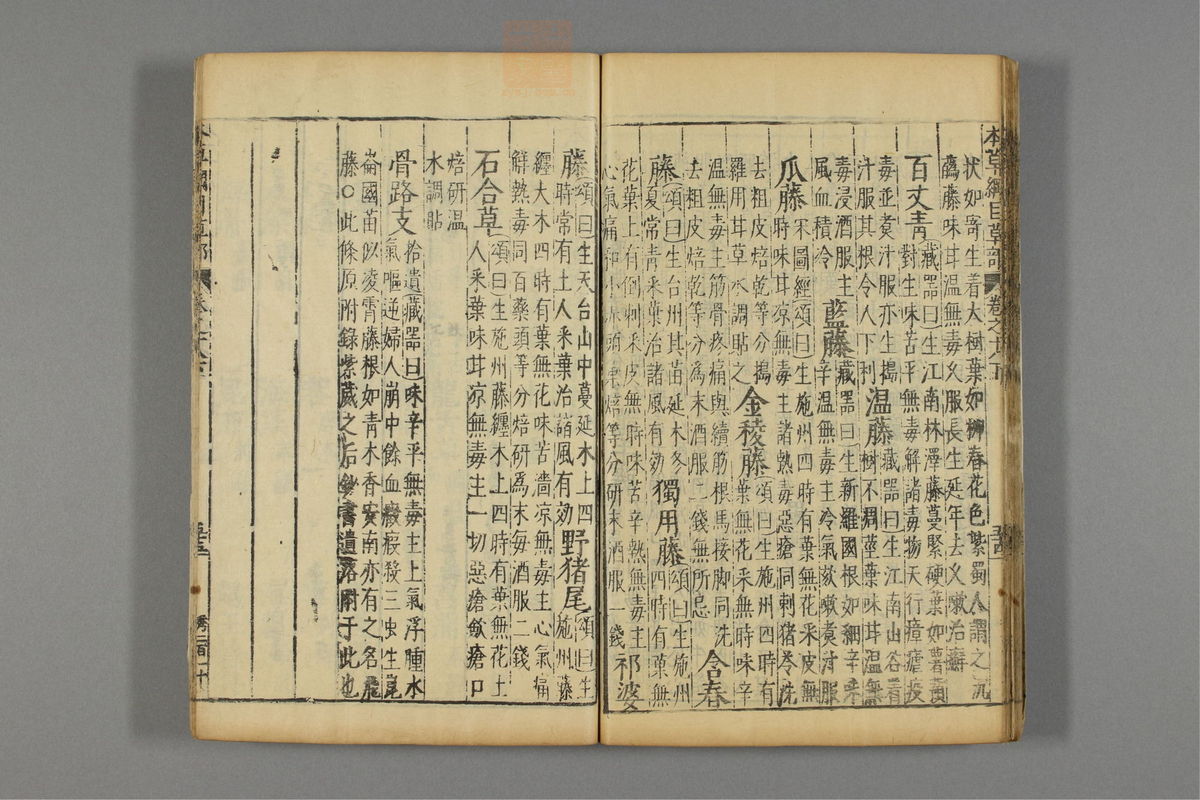 本草綱目草部 卷之十八下
狀如寄生着大樹葉如柳春花色紫蜀人謂之沉
藤味甘溫無毒久服長生延年去久嗽治癬
百丈青 藏器曰生江南林澤藤蔓緊硬葉如薯蕷
對生味苦平無毒解諸毒物天行瘴瘧疫
毒並煑汁服亦生搗
汁服其根令人下利 溫藤 藏器曰生江南山谷着
樹不凋莖葉味甘溫無
毒浸酒服主
風血積冷 藍藤 藏器曰生新羅國根如細辛味
辛溫無毒主冷氣欬嗽煑汁服
瓜藤 宋圖經頌曰生施州四時有葉無花采皮無
時味甘涼無毒主諸熱毒惡瘡同刺猪苓洗
去粗皮焙乾等分搗
羅用甘草水調貼之 金稜藤 頌曰生施州四時有
葉無花采無時味辛
溫無毒主筋骨疼痛與續筋根馬接脚同洗
去粗皮焙乾等分爲末酒服二錢無所忌 含春
藤 頌曰生台州其苗延木冬
夏常青采葉治諸風有効 獨用藤 頌曰生施州
四時有葉無
花葉上有倒刺采皮無時味苦辛熱無毒主
心氣痛和小赤頭葉焙等分研末酒服一錢 祁婆
藤 頌曰生天台山中蔓延木上四
時常有土人采葉治諸風有効 野猪尾 頌曰生
施州藤
纏大木四時有葉無花味苦濇涼無毒主心氣痛
解熱毒同百藥頭等分焙研爲末每酒服二錢
石合草 頌曰生施州藤纏木上四時有葉無花土
人采葉味甘涼無毒主一切惡瘡斂瘡口
焙研溫
水調貼
骨路支 拾遺藏器曰味辛平無毒主上氣浮腫水
氣嘔逆婦人崩中餘血癥瘕殺三虫生崑
崙國苗似凌霄藤根如青木香安南亦有之名飛
藤○此條原附錄紫葳之后鈔書遺落附于此也